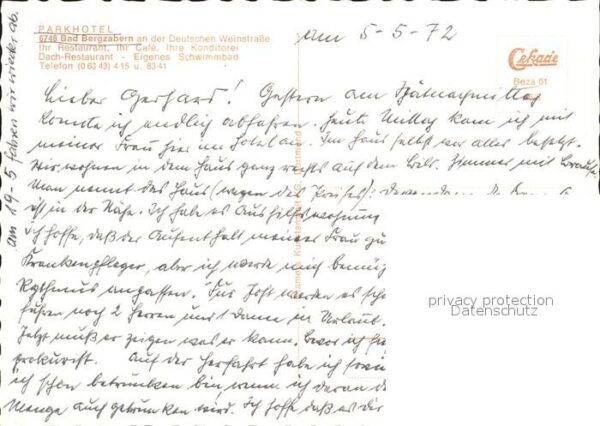 PARKHOTEL
6748 Bad Bergzabern an der Deutschen Weinstraße
Ihr Restaurant, Ihr Café, Ihre Konditorei
Dach-Restaurant - Eigenes Schwimmbad
Telefon (0 63 43) 4 15 u. 83 41
am 5-5-72
Cekade
Beza 01
Lieber Gerhard! Gestern am Spätnachmittag
konnte ich endlich abfahren. Heute Mittag kam ich mit
meiner Frau hier im Hotel an. Im Haus selbst war alles besetzt.
Wir wohnen in dem Haus ganz rechts auf dem Bild. Zimmer mit
Man nennt das Haus (wegen des Preises):
ist in der Nähe. Ich habe es Aushilfswohnung
ich hoffe, daß der Aufenthalt meiner Frau gu
Krankenpfleger, aber ich werde mich bemüh
Rythmus anpassen. Für werden es
fuhren noch 2 Herren und 1 Dame in Urlaub.
Jetzt muß er zeigen was er kann, bevor ich
prokurist. Auf der Herfahrt habe ich
ich schon betrunken bin, wenn ich daran d
Menge auch getrunken wird. Ich hoffe daß es dir
am 19.5 fahren wir wieder ab.
privacy protection
Datenschutz